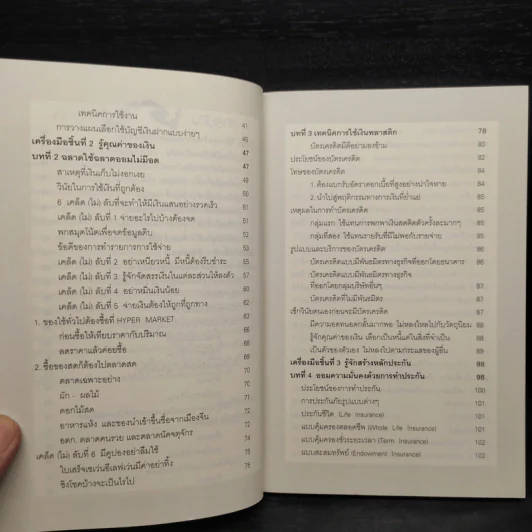 เทคนิคการใช้งาน 41
การวางแผนเลือกใช้บัญชีเงินฝากแบบง่ายๆ 45
เครื่องมือชิ้นที่ 2 รู้คุณค่าของเงิน 46
บทที่ 2 ฉลาดใช้ฉลาดออมไม่มีอด 47
สาเหตุที่เงินเก็บไม่งอกเงย
วินัยในการใช้เงินที่ถูกต้อง
6 เคล็ด (ไม่) ลับที่จะทำให้มีเงินแสนอย่างรวดเร็ว
เคล็ด (ไม่) ลับที่ 1 จ่ายอะไรไปบ้างต้องจด
พกสมุดโน้ตเพื่อจดข้อมูลดิบ
ข้อดีของการทำรายการการใช้จ่าย
เคล็ด (ไม่) ลับที่ 2 อย่าเหนียวหนี้ มีหนี้ต้องรีบชำระ
เคล็ด (ไม่) ลับที่ 3 รู้จักจัดสรรเงินในแต่ละส่วนให้ลงตัว
เคล็ด (ไม่) ลับที่ 4 อย่าหมิ่นเงินน้อย
เคล็ด (ไม่) ลับที่ 5 จ่ายเงินต้องให้ถูกที่ถูกทาง
1. ของใช้ทั่วไปต้องซื้อที่ HYPER MARKET
ก่อนซื้อให้เทียบราคากับปริมาณ
ลดราคาแล้วค่อยซื้อ
2. ซื้อของสดก็ต้องไปตลาดสด
ตลาดเฉพาะอย่าง
ผัก - ผลไม้
ดอกไม้สด
อาหารแห้ง และของนำเข้าขึ้นชื่อจากเมืองจีน
อตก. ตลาดคนรวย และตลาดนัดจตุจักร
เคล็ด (ไม่) ลับที่ 6 มีคูปองอย่าลืมใช้ 75
ใบเสร็จเซเว่นอีเลฟเว่นมีค่าอย่าทิ้ง 76
ชิงโชคบ้างจะเป็นไรไป 76
บทที่ 3 เทคนิคการใช้เงินพลาสติก 78
บัตรเครดิตมีดีอย่ามองข้าม 80
ประโยชน์ของบัตรเครดิต 82
โทษของบัตรเครดิต 84
1. ต้องแบกรับอัตราดอกเบี้ยที่สูงอย่างน่าใจหาย 84
2. นำไปสู่พฤติกรรมทางการเงินที่ย่ำแย่ 85
เหตุผลในการทำบัตรเครดิต 85
กลุ่มแรก ใช้แทนการพกพาเงินสดติดตัวครั้งละมากๆ 85
กลุ่มที่สอง ใช้แทนรายรับที่มีไม่พอกับรายจ่าย 85
รูปแบบและบริการของบัตรเครดิต 86
บัตรเครดิตแบบมีพันธมิตรทางธุรกิจที่ออกโดยธนาคาร 86
บัตรเครดิตแบบมีพันธมิตรทางธุรกิจ
ที่ออกโดยกลุ่มบริษัทอื่นๆ 87
บัตรเครดิตที่ไม่มีพันธมิตร 87
เช็กวินัยตนเองก่อนจะมีบัตรเครดิต 87
มีความอดทนอดกลั้นมากพอ ไม่หลงใหลไปกับวัตถุนิยม 88
รู้จักคุณค่าของเงิน เลือกเป็นหนี้แต่ในสิ่งที่จำเป็น 89
เป็นตัวของตัวเอง ไม่หลงไปตามกระแสของผู้อื่น
เครื่องมือชิ้นที่ 3 รู้จักสร้างหลักประกัน 98
บทที่ 4 ออมความมั่นคงด้วยการทำประกัน 98
ประโยชน์ของการทำประกัน 100
การประกันภัยรูปแบบต่างๆ 100
ประกันชีวิต (Life Insurance) 101
แบบคุ้มครองตลอดชีพ (Whole Life Insurance) 101
แบบคุ้มครองชั่วระยะเวลา (Term Insurance) 102
แบบสะสมทรัพย์ (Endowment Insurance) 102